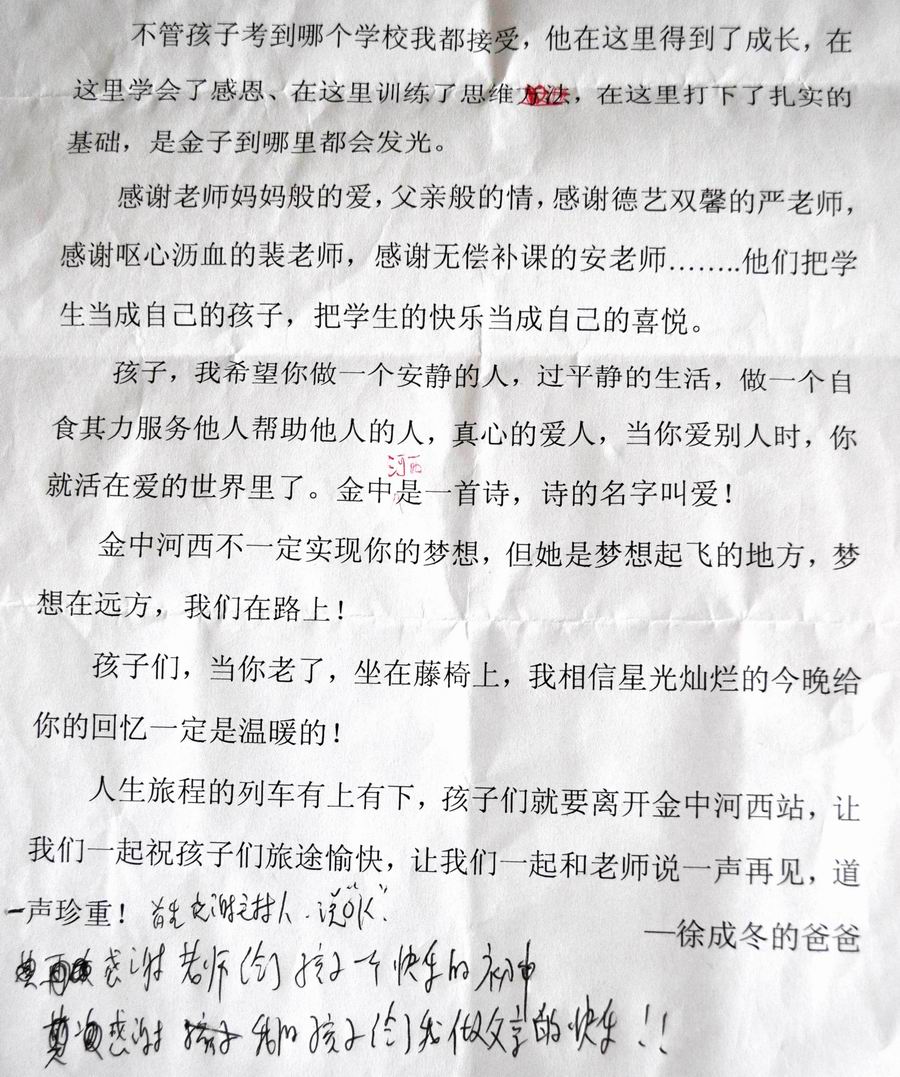 不管孩子考到哪个学校我都接受，他在这里得到了成长，在
这里学会了感恩、在这里训练了思维方法，在这里打下了扎实的
基础，是金子到哪里都会发光。
感谢老师妈妈般的爱，父亲般的情，感谢德艺双馨的严老师，
感谢呕心沥血的裴老师，感谢无偿补课的安老师……..他们把学
生当成自己的孩子，把学生的快乐当成自己的喜悦。
孩子，我希望你做一个安静的人，过平静的生活，做一个自
食其力服务他人帮助他人的人，真心的爱人，当你爱别人时，你
河西
就活在爱的世界里了。金中是一首诗，诗的名字叫爱！
金中河西不一定实现你的梦想，但她是梦想起飞的地方，梦
想在远方，我们在路上！
孩子们，当你老了，坐在藤椅上，我相信星光灿烂的今晚给
你的回忆一定是温暖的！
人生旅程的列车有上有下，孩子们就要离开金中河西站，让
我们一起祝孩子们旅途愉快，让我们一起和老师说一声再见，道
一声珍重！首先感谢主持人，说“OK”.
—徐成冬的爸爸
再感谢老师给了孩子一个快乐的初中
感谢我的孩子给了我做父亲的快乐！！